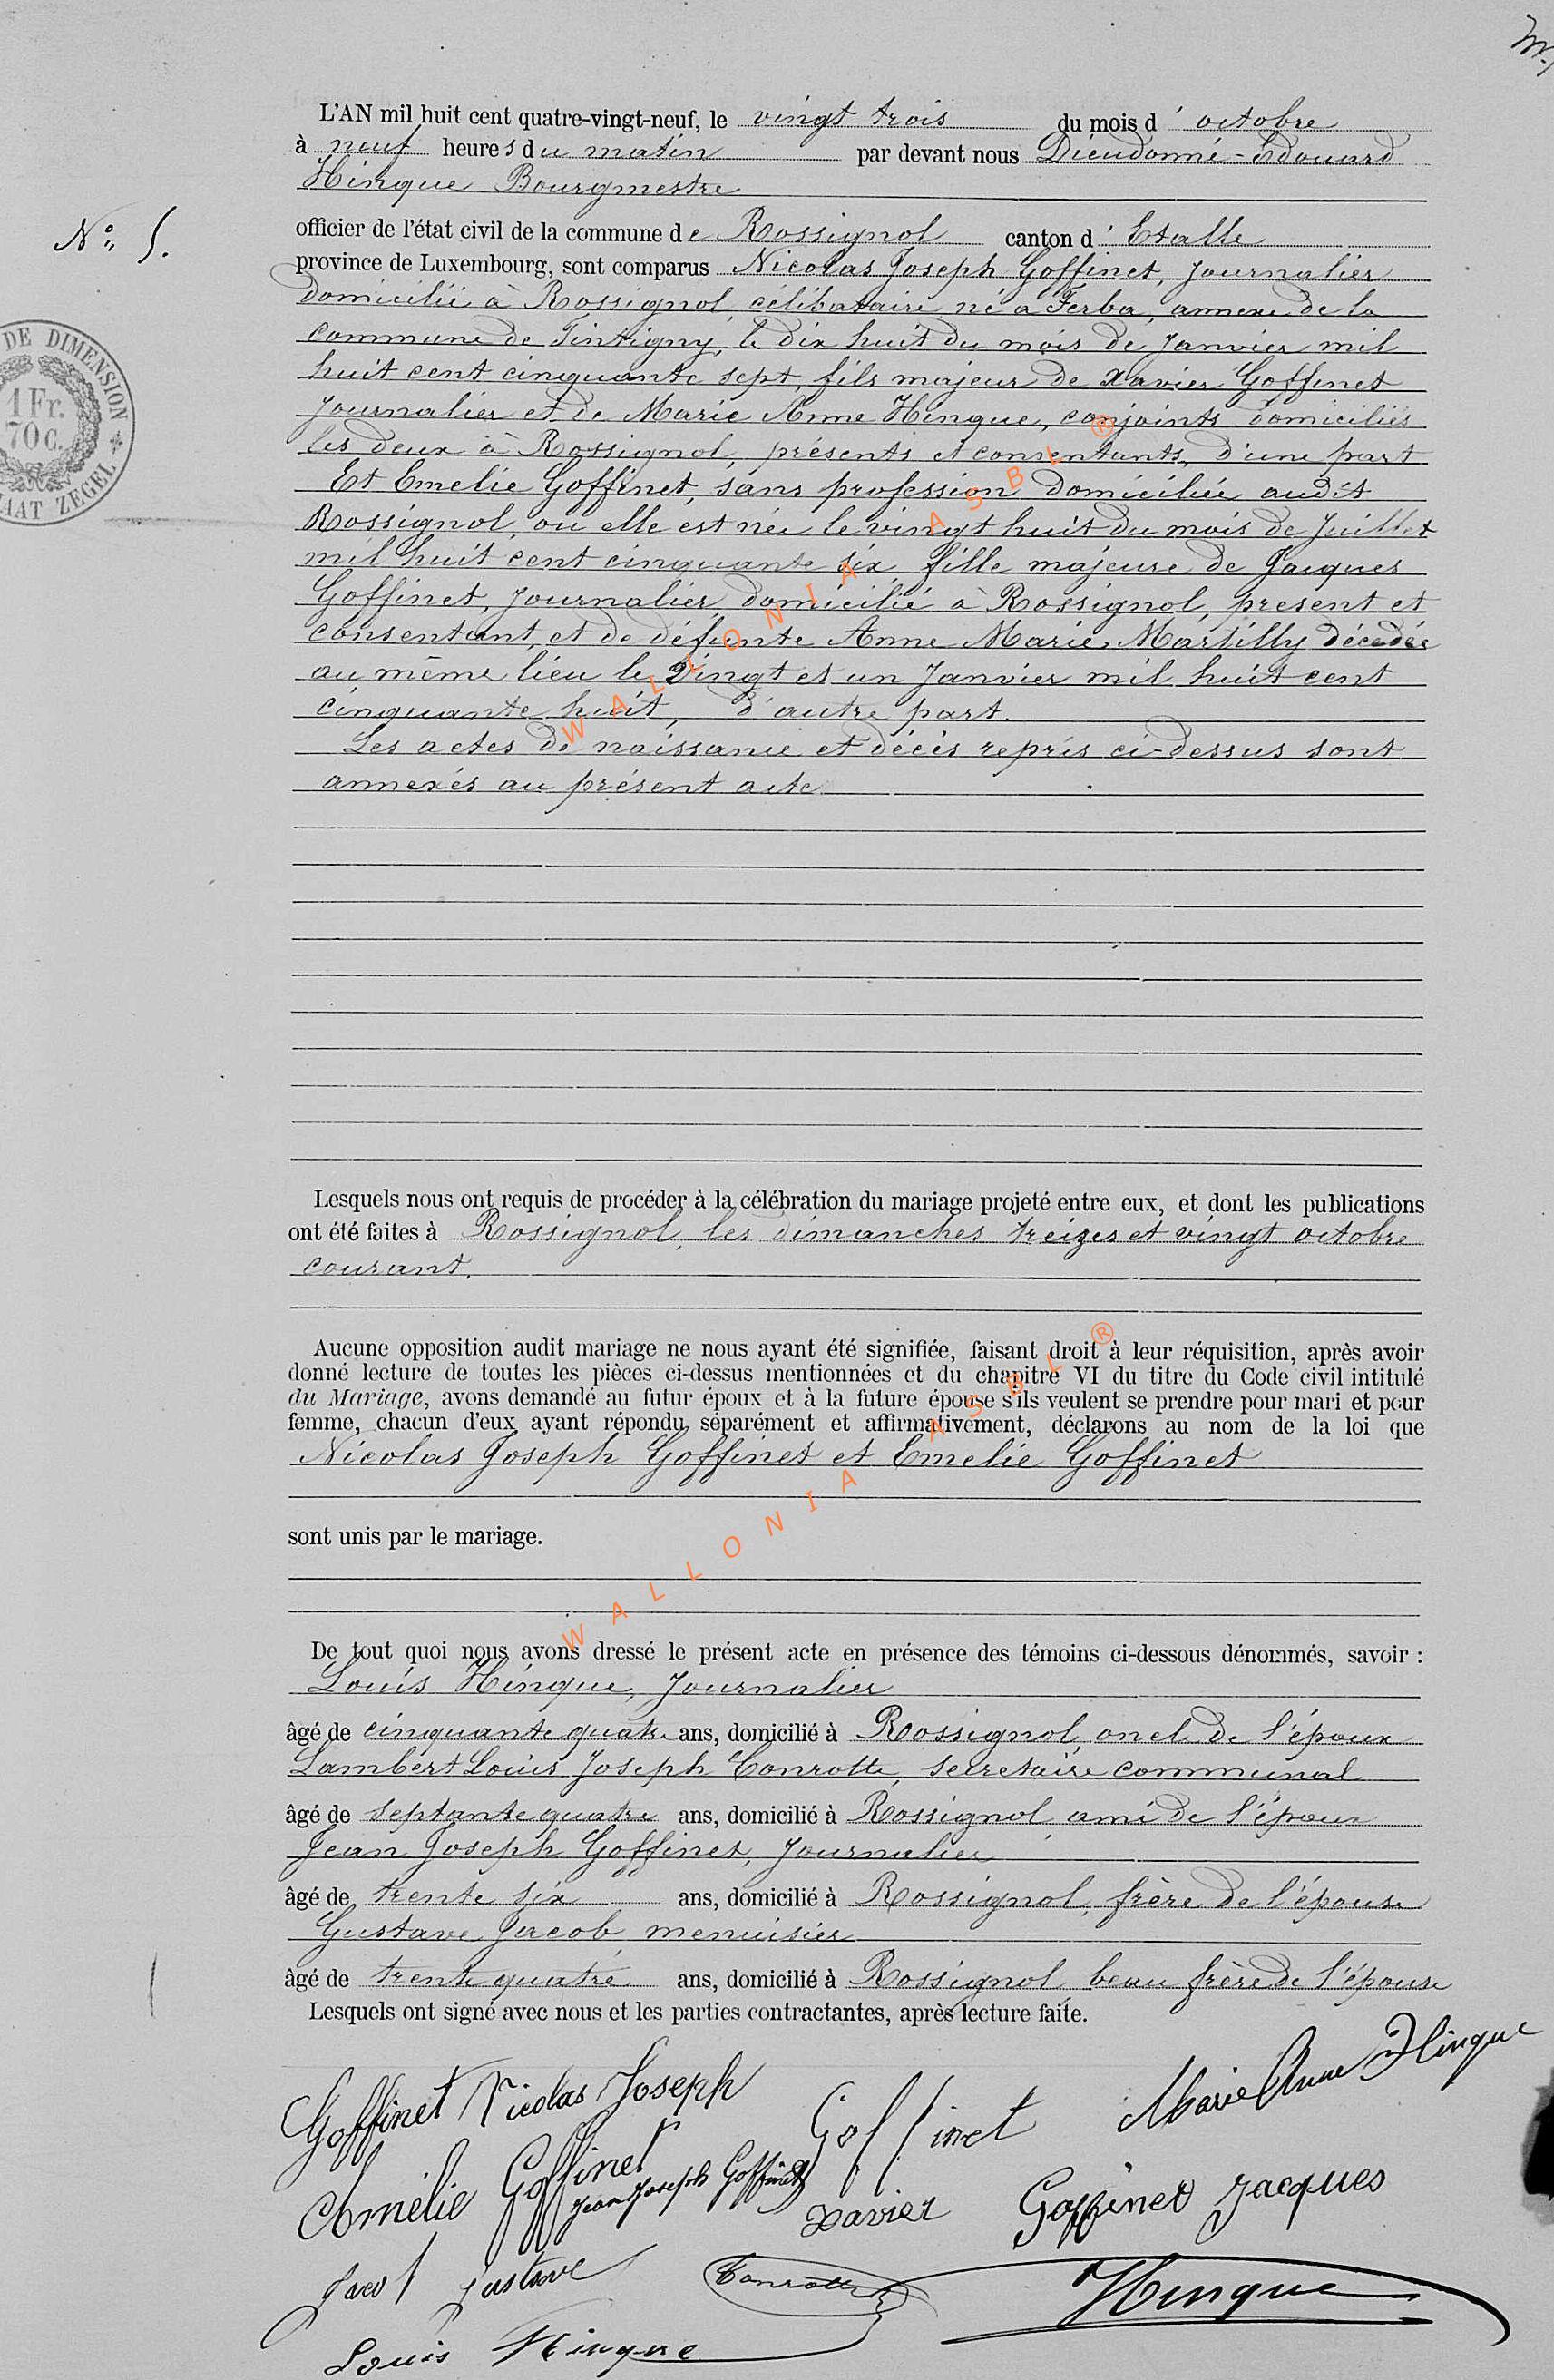 L'AN mil huit cent quatre-vingt-neuf, le vingt trois du mois d' octobre
à neuf heures du matin par devant nous Dieudonné-Edouard
Hinque Bourgmestre
N° 5.
officier de l'état civil de la commune de Rossignol canton d' Etalle
province de Luxembourg, sont comparus Nicolas Joseph Goffinet, Journalier
domicilié à Rossignol, célibataire né à Ferba, annexe de la
commune de Tintigny, le dix huit du mois de Janvier mil
huit cent cinquante sept, fils majeur de Xavier Goffinet
Journalier et de Marie Anne Hinque, conjoints domiciliés
les deux à Rossignol, présents et consentants, d'une part
Et Emelie Goffinet, sans profession domiciliée audit
Rossignol, ou elle est née le vingt huit du mois de Juillet
mil huit cent cinquante six, fille majeure de Jacques
Goffinet, Journalier, domicilié à Rossignol, présent et
consentant, et de défunte Anne Marie Martilly décédée
au même lieu le vingt et un Janvier mil huit cent
cinquante huit, d'autre part.
Les actes de naissance et décès repris ci-dessus sont
annexés au présent acte
DE DIMENSION
1 Fr.
70 c.
ZEGEL
Lesquels nous ont requis de procéder à la célébration du mariage projeté entre eux, et dont les publications
ont été faites à Rossignol, les dimanches treizes et vingt octobre
courant.
Aucune opposition audit mariage ne nous ayant été signifiée, faisant droit à leur réquisition, après avoir
donné lecture de toutes les pièces ci-dessus mentionnées et du chapitre VI du titre du Code civil intitulé
du Mariage, avons demandé au futur époux et à la future épouse s'ils veulent se prendre pour mari et pour
femme, chacun d'eux ayant répondu séparément et affirmativement, déclarons au nom de la loi que
Nicolas Joseph Goffinet et Emelie Goffinet
sont unis par le mariage.
De tout quoi nous avons dressé le présent acte en présence des témoins ci-dessous dénommés, savoir :
Louis Hinque, Journalier
âgé de cinquante quatre ans, domicilié à Rossignol, oncle de l'époux
Lambert Louis Joseph Conrotte, secretaire communal
âgé de septante quatre ans, domicilié à Rossignol ami de l'époux
Jean Joseph Goffinet, Journalier
âgé de trente six ans, domicilié à Rossignol, frère de l'épouse
Gustave Jacob, menuisier
âgé de trente quatre ans, domicilié à Rossignol, beau frère de l'épouse
Lesquels ont signé avec nous et les parties contractantes, après lecture faite.
Goffinet Nicolas Joseph
Goffinet Xavier
Marie Anne Hinque
Amelie Goffinet
Jean Joseph Goffinet
Goffinet Jacques
Jacob Gustave
Conrotte
Hinque
Louis Hinque
WALLONIA ASBL ®
WALLONIA ASBL ®